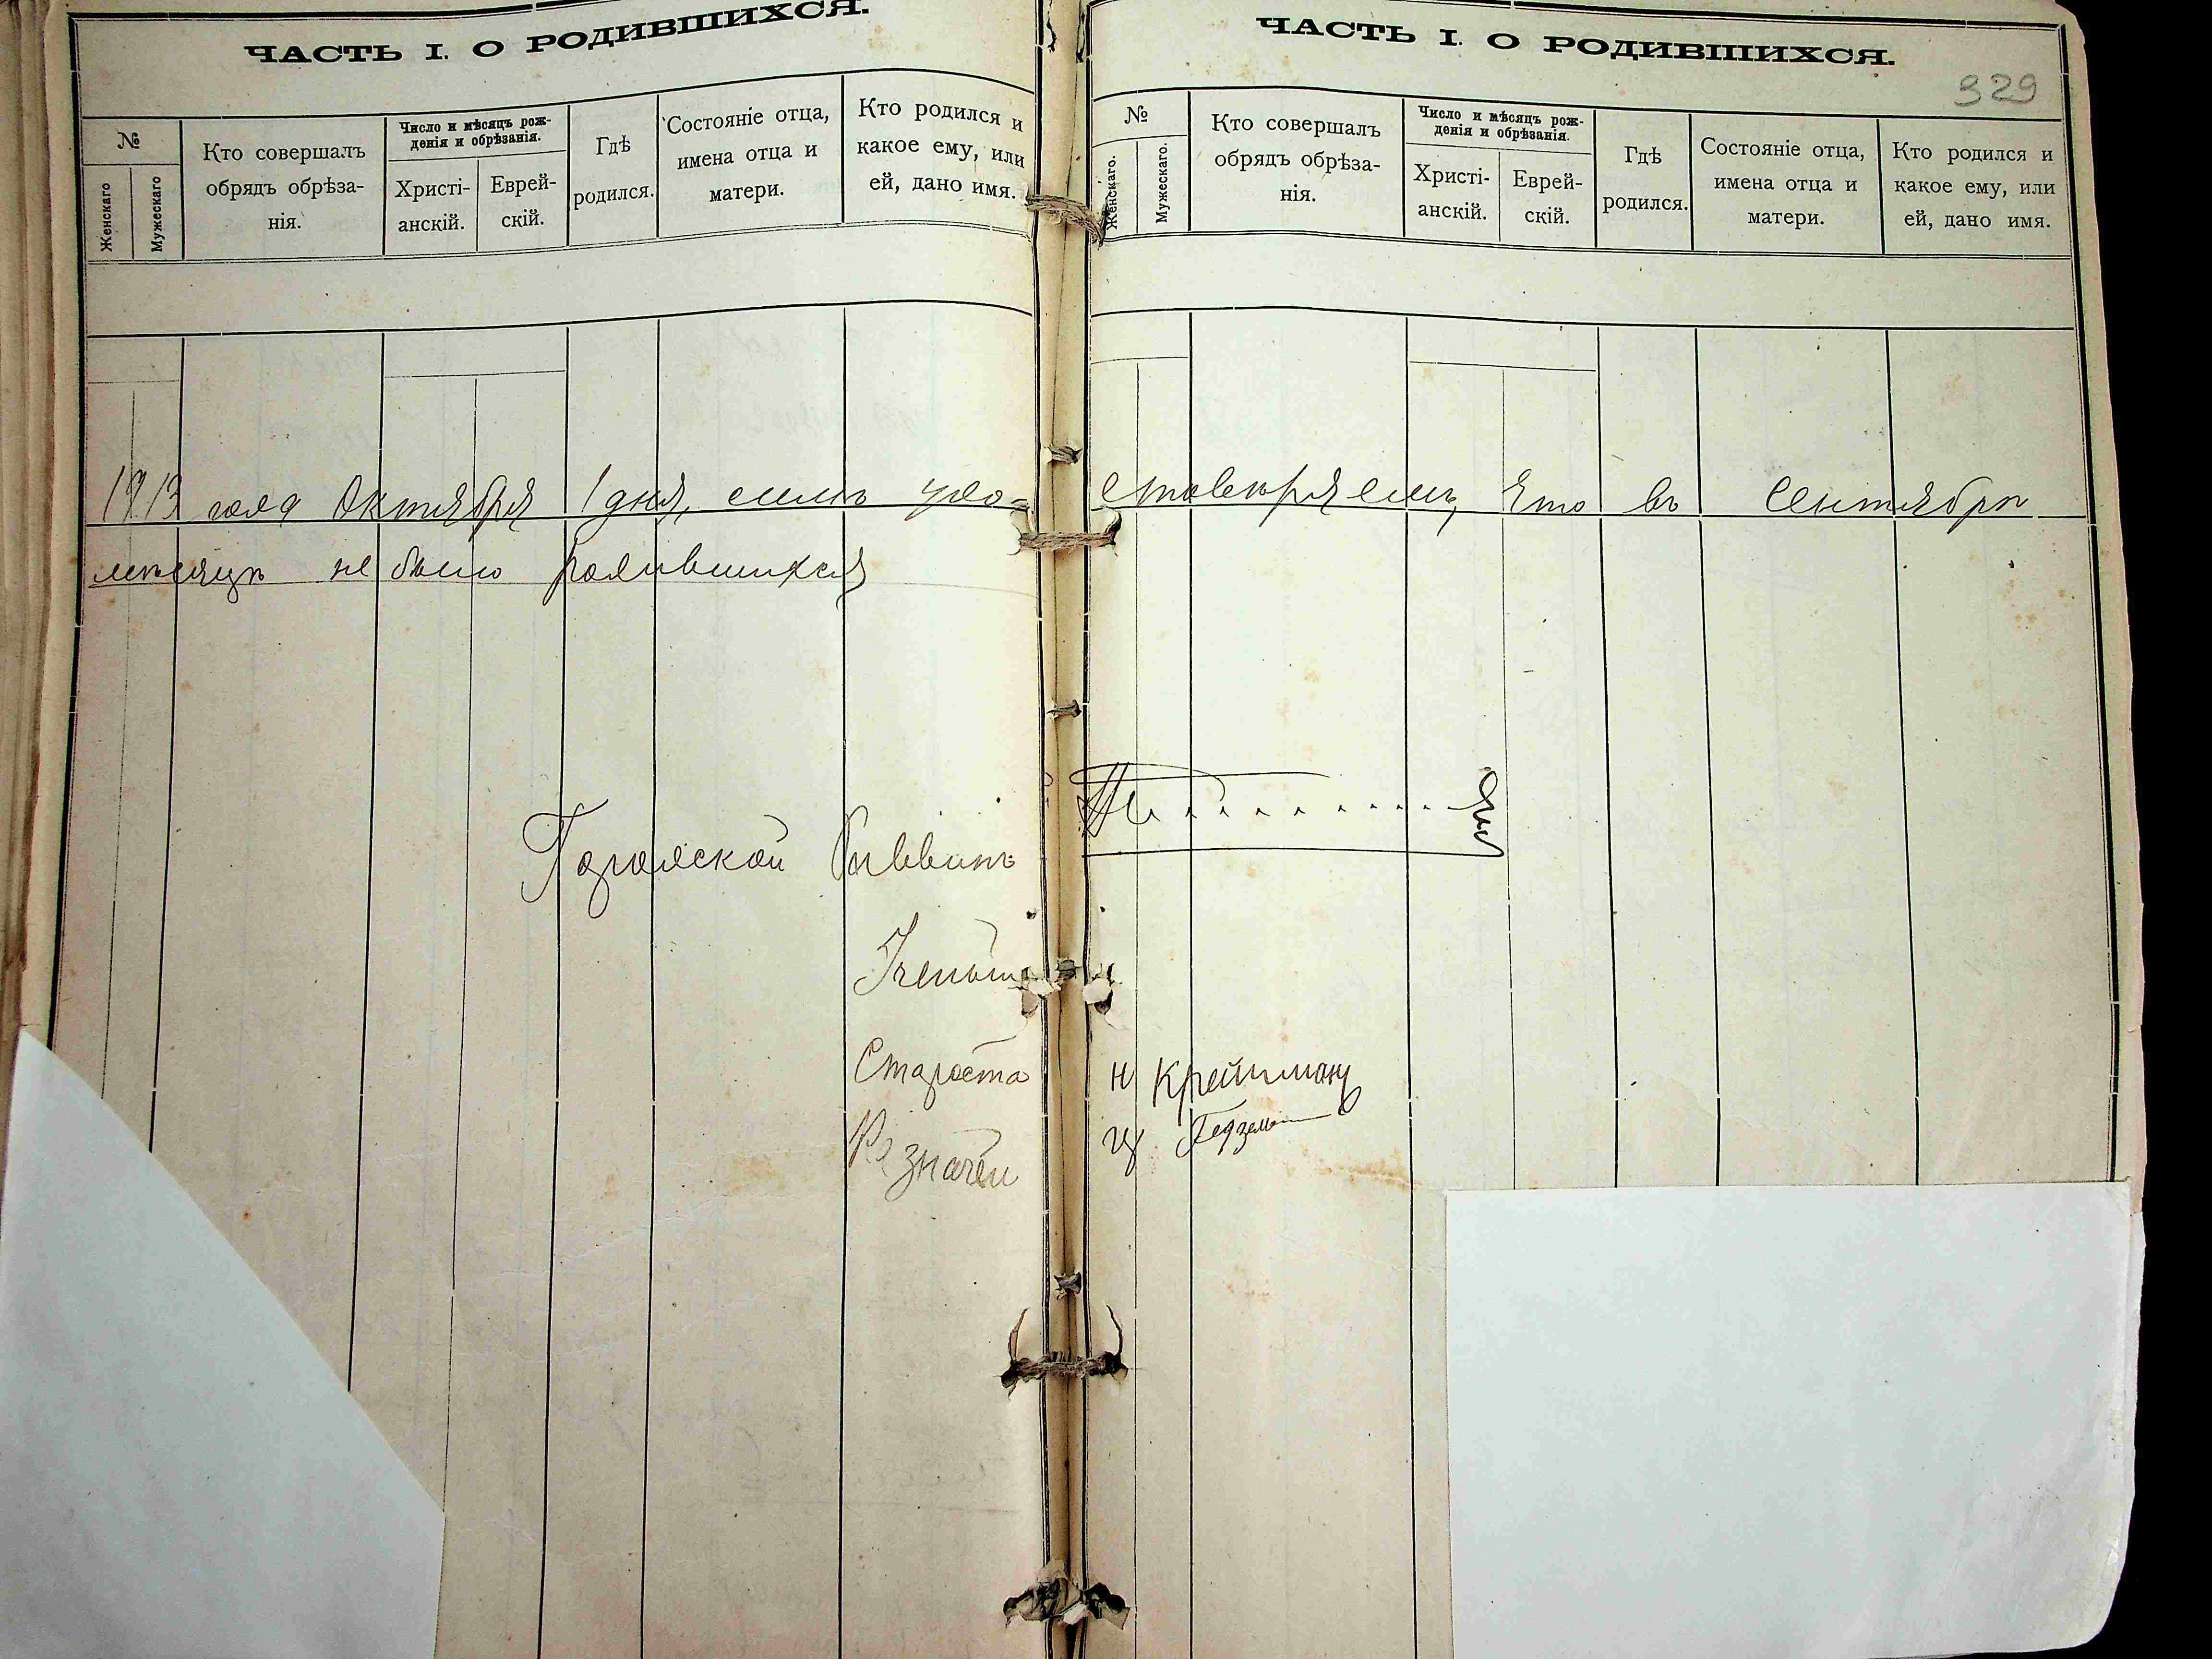 ЧАСТЬ I. О РОДИВШИХСЯ.
№
Женскаго
Мужескаго
Кто совершалъ
обрядъ обрѣза-
нія.
Число и мѣсяцъ рож-
денія и обрѣзанія.
Христі-
анскій.
Еврей-
скій.
Гдѣ
родился.
Состояніе отца,
имена отца и
матери.
Кто родился и
какое ему, или
ей, дано имя.
ЧАСТЬ I. О РОДИВШИХСЯ.
329
№
Женскаго.
Мужескаго.
Кто совершалъ
обрядъ обрѣза-
нія.
Число и мѣсяцъ рож-
денія и обрѣзанія.
Христі-
анскій.
Еврей-
скій.
Гдѣ
родился.
Состояніе отца,
имена отца и
матери.
Кто родился и
какое ему, или
ей, дано имя.
1913 года Октября 1 дня, симъ удо= стовѣряемъ, что въ Сентябрѣ
мѣсяцѣ не было родившихся
Городской Раввинъ
Ученый
Староста Н Крейтманъ
Казначей